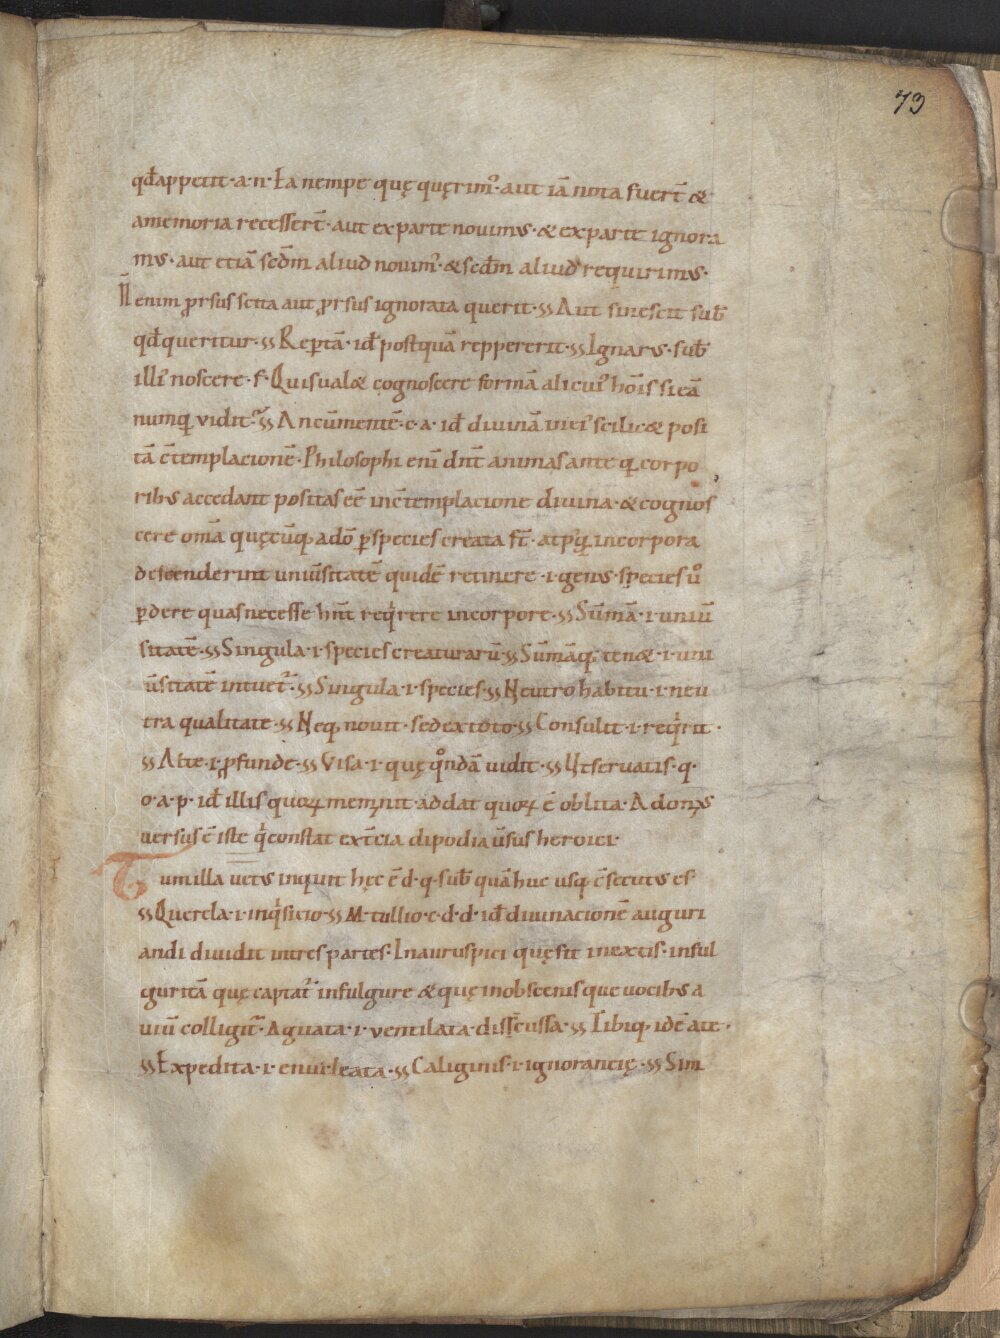 73
qđ appetit · a · n · Ea nempe quę quęrim᾽ · aut iā nota fuer̄t &
a memoria recesser̄t · aut ex parte novimus · & ex parte ignora
mus · aut etiā sed̄m aliud novim᾽ · & sed̄m aliud requirimus ·
enim ꝓrsus scita aut ꝓrsus ignorata querit · ss Aut si nescit sub̄
qđ queritur · ss Rep̄tā · iđ postquā reppererit · ss Ignarus · sub̄
illi᾽ noscere · f · Quis valet cognoscere formā alicui᾽ hōis si eā
numq̄ vidit · ss An cū mentē · c · a · iđ divinā scilic& posi
tā c̄templacionē · Philosophi enī dn̄t animas ante q̄ corpo
ribus accedant positas eē in c̄templacione divina · & cognos
cere om̄a quęcūq; a dō p̱ species creata st̄ · at pq̄ in corpora
descenderint univ̄sitatē quidē retinere · i · genus · species v̊
p̱dere quas necesse hn̄t req̇rere in corpore · ss Sūmā · i · univ̄
sitatē · ss Singula · i · species creaturarū · ss Sūmāq; ten& · i · uni
v̄sitatē intuet᾽ · ss Singula · i · species · ss Neutro habitu · i · neu
tra qualitate · ss Neq; novit · sed ex toto · ss Consulit · i · req̇rit ·
ss Alte · i · ꝓfunde · ss Visa · i · quę q̊ndā vidit · ss Ut servatis · q ·
o · a · p · iđ illis quoꝝ meminit · addat quoꝝ ē oblita · Adonius
versus ē iste q̇ constat ex t̄cia dipodia v̄sus heroici ·
Tum illa vetus inquit hęc ē d · q · sub̄ quā huc usq; c̄secutus es ·
ss Querela · i · inq̇sicio · ss M · tullio · c · d · d · iđ divinacionē auguri
andi dividit in tres partes · In auruspici quę fit in extis · in ful
guritā quę captat᾽ in fulgure & quę in obscenis que vocibus a
viū colligit᾽ · Aguata · i · ventilata · discussa · ss Tibiq; idē ate ·
ss Expedita · i · enucleata · ss Caliginis · i · ignorancię · ss Sim